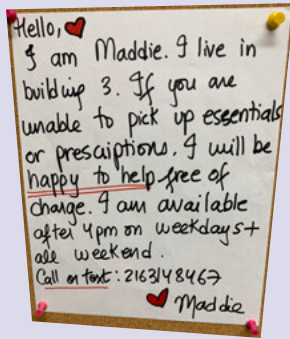 Hello,
I am Maddie. I live in
building 3. If you are
unable to pick up essentials
or prescriptions. I will be
happy to help free of
charge. I am available
after 4pm on weekdays +
all weekend.
Call or text: 2163148467
Maddie